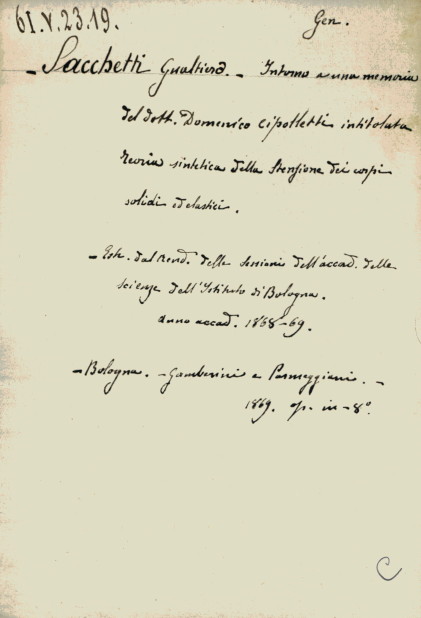 61.V.23.19.
Gen.
- Sacchetti Gualtiero. - Intorno a una memoria
del dott. Domenico Cipolletti intitolata
Teoria sintetica della Stensione dei corpi
solidi ed elastici.
- Estr. dal Rend. delle sessioni dell'accad. delle
scienze dell'Istituto di Bologna.
anno accad. 1868-69.
- Bologna. - Gamberini e Parmeggiani. -
1869. op. in-8°.
C